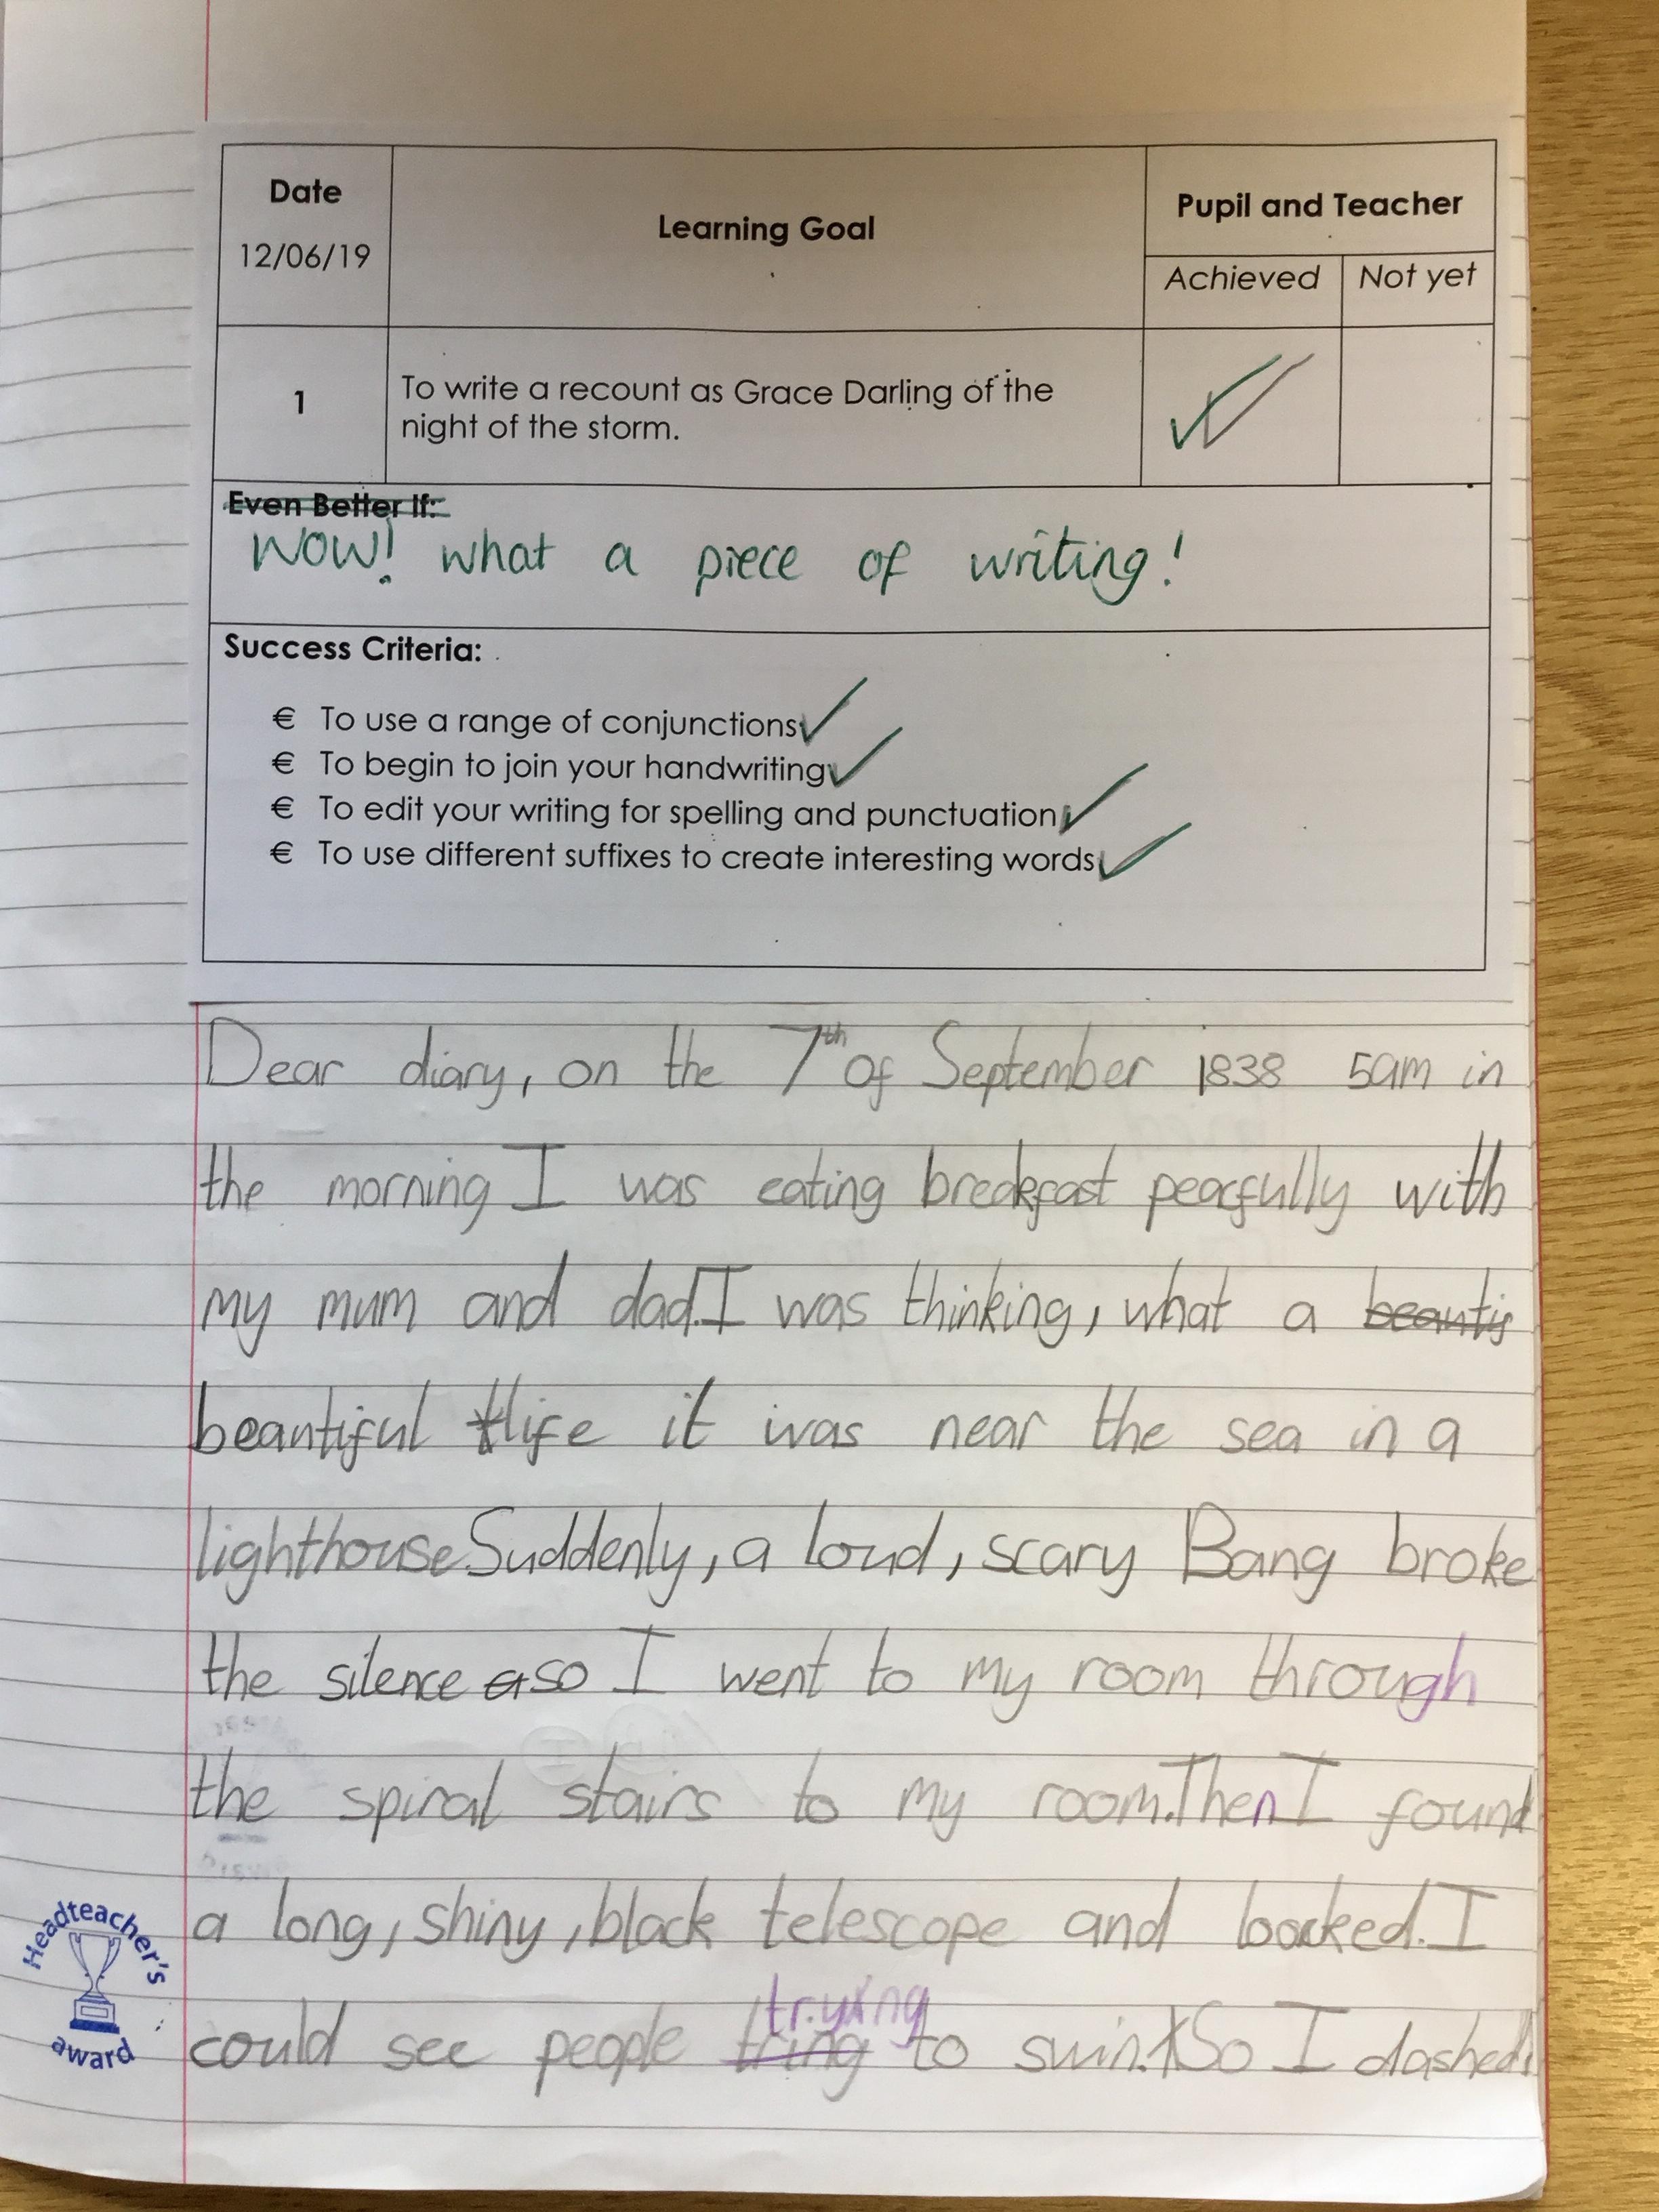 Date
12/06/19
Learning Goal
Pupil and Teacher
Achieved
Not yet
1
To write a recount as Grace Darling of the
night of the storm.
Even Better If:
WOW! what a piece of writing!
Success Criteria:
€ To use a range of conjunctions
€ To begin to join your handwriting
€ To edit your writing for spelling and punctuation
€ To use different suffixes to create interesting words
Dear diary, on the 7th of September 1838 5am in
the morning I was eating breakfast peacfully with
my mum and dad.I was thinking, what a beautif
beautiful life it was near the sea in a
lighthouse.Suddenly, a loud, scary Bang broke
the silence so I went to my room through
the spiral stairs to my room.Then I found
a long, shiny, black telescope and loocked.I
trying
could see people tring to swim. So I dashed
Headteacher's
award